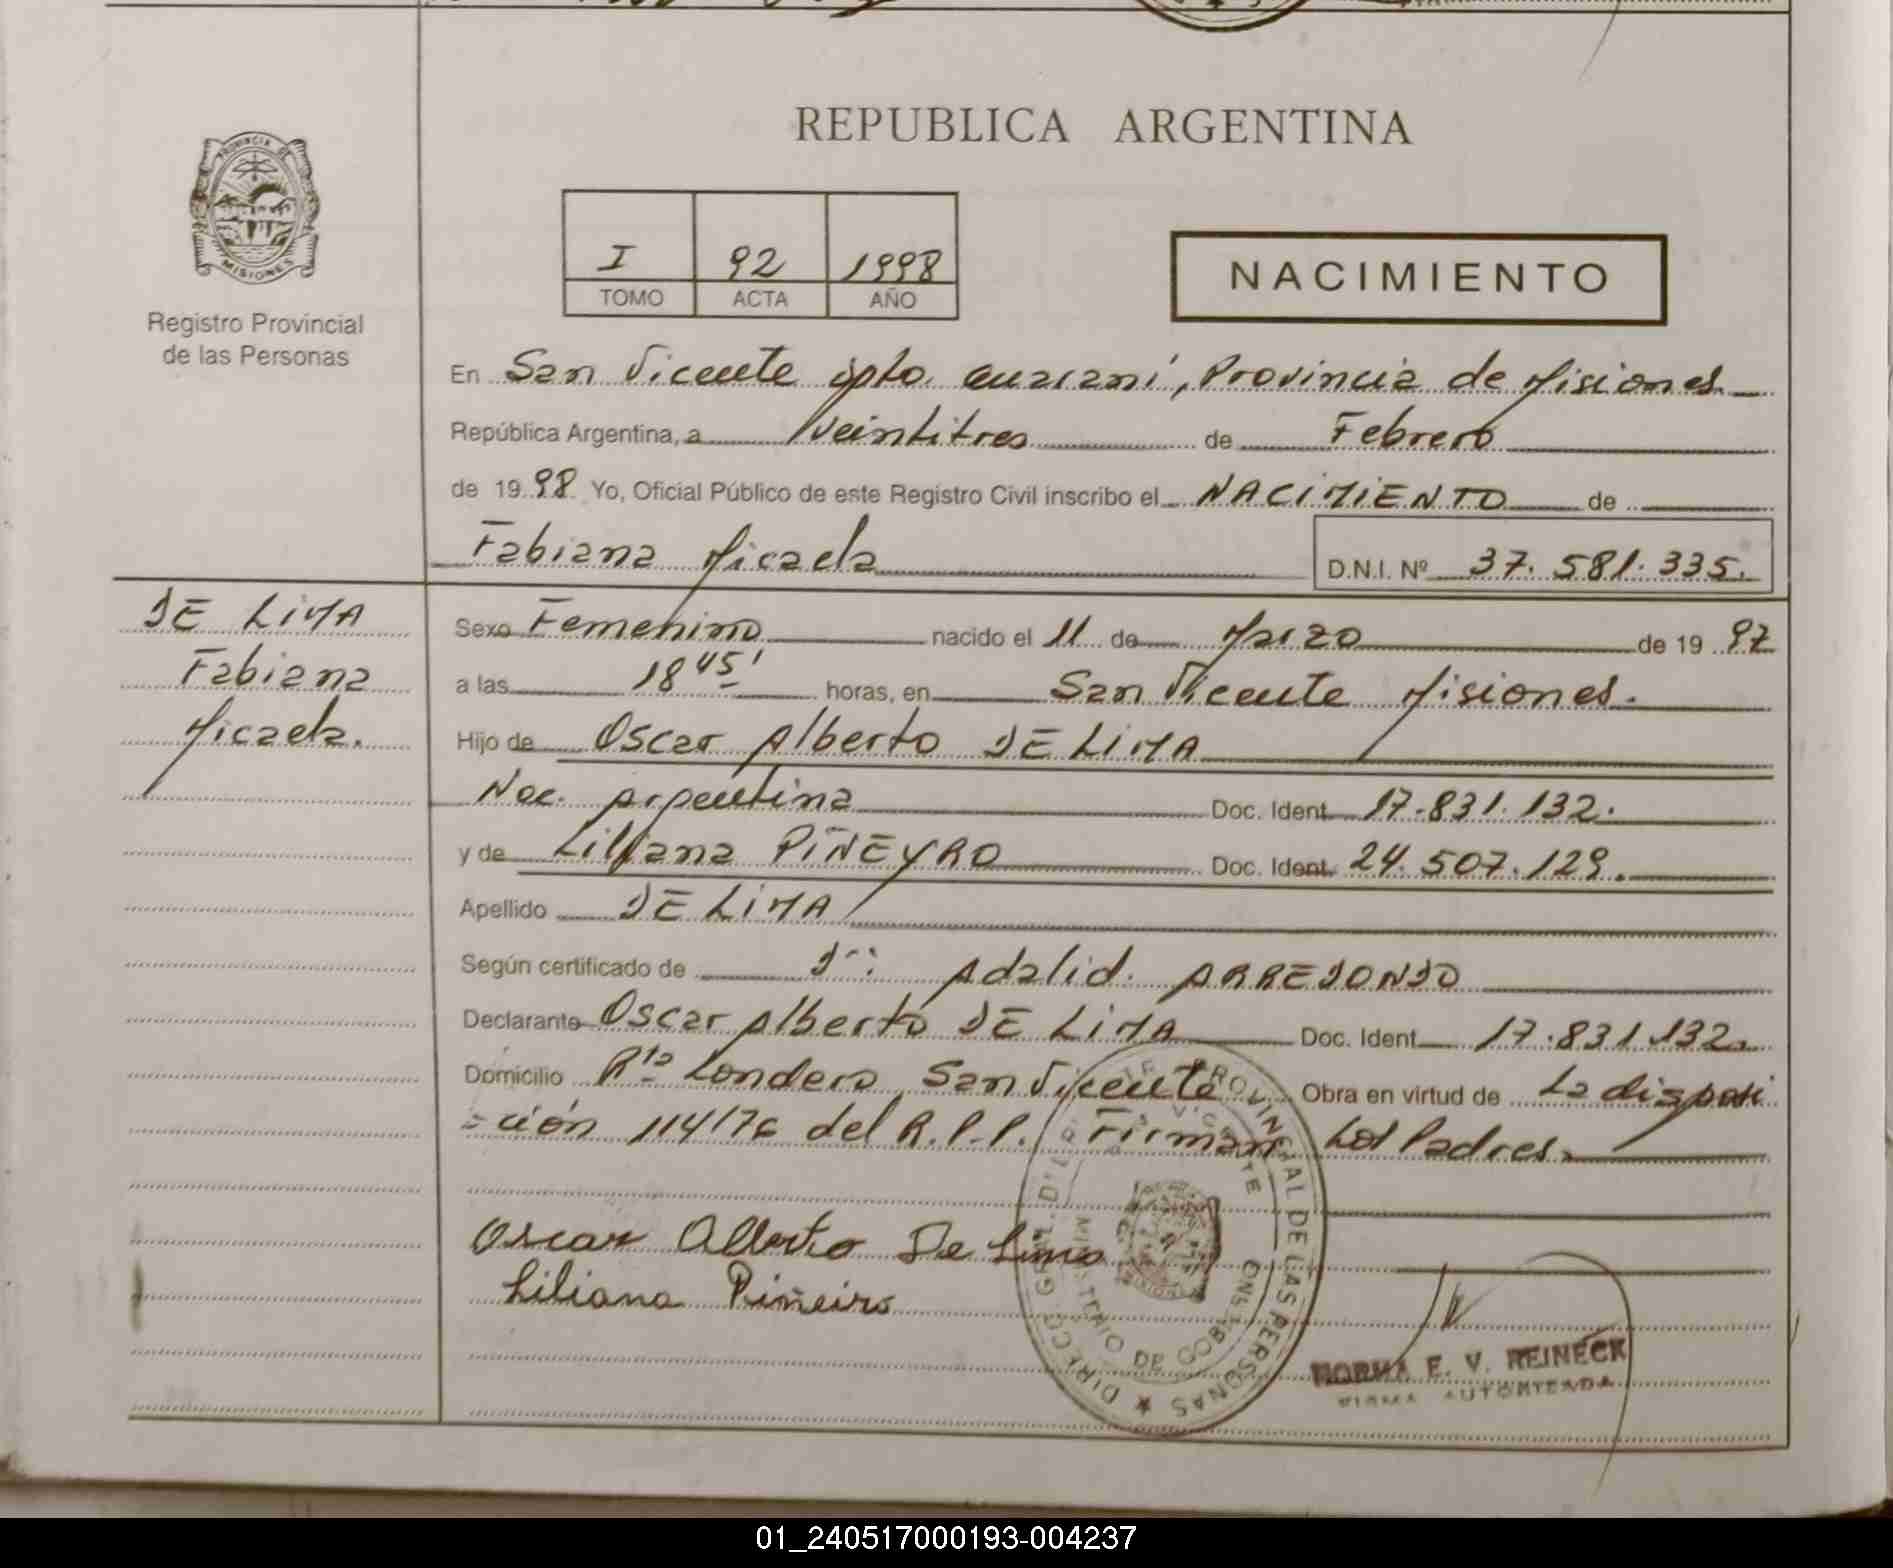 REPUBLICA ARGENTINA
PROVINCIA DE
MISIONES
Registro Provincial
de las Personas
I 92 1998
TOMO ACTA AÑO
NACIMIENTO
En San Vicente dpto. Guaraní, Provincia de Misiones
República Argentina, a veintitres de Febrero
de 1998 Yo, Oficial Público de este Registro Civil inscribo el NACIMIENTO de
Fabiana Micaela D.N.I. Nº 37.581.335.
DE LIMA
Fabiana
Micaela.
Sexo Femenino nacido el 11 de Marzo de 1997
a las 18 45' horas, en San Vicente Misiones.
Hijo de Oscar Alberto DE LIMA
Nac. Argentina Doc. Ident. 17.831.132.
y de Liliana PIÑEYRO Doc. Ident. 24.507.129.
Apellido DE LIMA
Según certificado de Dr: Adalid. ARREDONDO
Declarante Oscar Alberto DE LIMA Doc. Ident. 17.831.132.
Domicilio Rta Londero San Vicente Obra en virtud de La disposi
=ción 114/76 del R.P.P. Firman Los Padres.
Oscar Alberto De Lima
Liliana Piñeiro
PROVINCIAL DE LAS PERSONAS
MINISTERIO DE GOBIERNO
NORMA E. V. REINECK
FIRMA AUTORIZADA
01_240517000193-004237